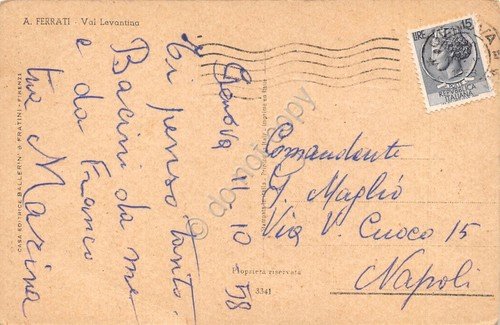 A. FERRATI - Val Levantina
Genova 11 - 10 - 58
Ti penso tanto.
Bacini da me
e da Franco
tua Marina
CASA EDITRICE BALLERINI & FRATINI - FIRENZE
Proprietà riservata
3341
LIRE 15
REPUBBLICA
ITALIANA
Comandante
G. Maglió
Via V. Cuoco 15
Napoli
do not copy